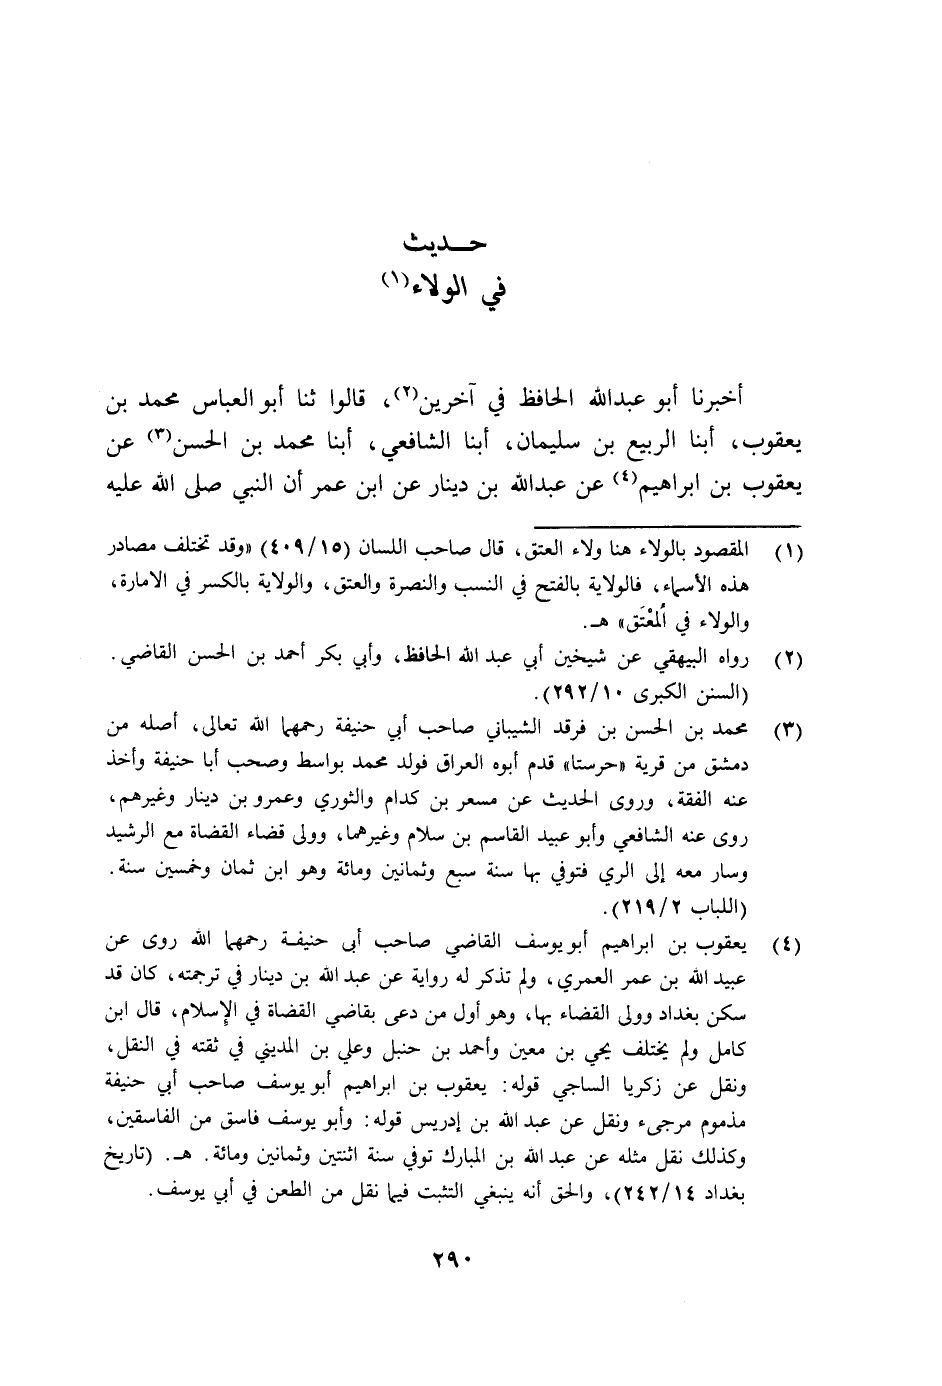 حـديث
في الولاء(١)
أخبرنا أبو عبدالله الحافظ في آخرين(٢)، قالوا ثنا أبو العباس محمد بن
يعقوب، أبنا الربيع بن سليمان، أبنا الشافعي، أبنا محمد بن الحسن(٣) عن
يعقوب بن ابراهيم(٤) عن عبدالله بن دينار عن ابن عمر أن النبي صلى الله عليه
(١) المقصود بالولاء هنا ولاء العتق، قال صاحب اللسان (٤٠٩/١٥) «وقد تختلف مصادر
هذه الأسماء، فالولاية بالفتح في النسب والنصرة والعتق، والولاية بالكسر في الامارة،
والولاء في ٱلمعْتَق» هـ.
(٢) رواه البيهقي عن شيخين أبي عبد الله الحافظ، وأبي بكر أحمد بن الحسن القاضي.
(السنن الكبرى ٢٩٢/١٠).
(٣) محمد بن الحسن بن فرقد الشيباني صاحب أبي حنيفة رحمهما الله تعالى، أصله من
دمشق من قرية «حرستا» قدم أبوه العراق فولد محمد بواسط وصحب أبا حنيفة وأخذ
عنه الفقة، وروى الحديث عن مسعر بن كدام والثوري وعمرو بن دينار وغيرهم،
روى عنه الشافعي وأبو عبيد القاسم بن سلام وغيرهما، وولى قضاء القضاة مع الرشيد
وسار معه إلى الري فتوفي بها سنة سبع وثمانين ومائة وهو ابن ثمان وخمسين سنة.
(اللباب ٢١٩/٢).
(٤) يعقوب بن ابراهيم أبو يوسف القاضي صاحب أبى حنيفة رحمهما الله روى عن
عبيد الله بن عمر العمري، ولم تذكر له رواية عن عبد الله بن دينار في ترجمته، كان قد
سكن بغداد وولى القضاء بها، وهو أول من دعى بقاضي القضاة في الإسلام، قال ابن
كامل ولم يختلف يحي بن معين وأحمد بن حنبل وعلي بن المديني في ثقته في النقل،
ونقل عن زكريا الساجي قوله: يعقوب بن ابراهيم أبو يوسف صاحب أبي حنيفة
مذموم مرجىء ونقل عن عبد الله بن إدريس قوله: وأبو يوسف فاسق من الفاسقين،
وكذلك نقل مثله عن عبد الله بن المبارك توفي سنة اثنتين وثمانين ومائة. هـ. (تاريخ
بغداد ٢٤٢/١٤)، والحق أنه ينبغي التثبت فيما نقل من الطعن في أبي يوسف.
٢٩٠